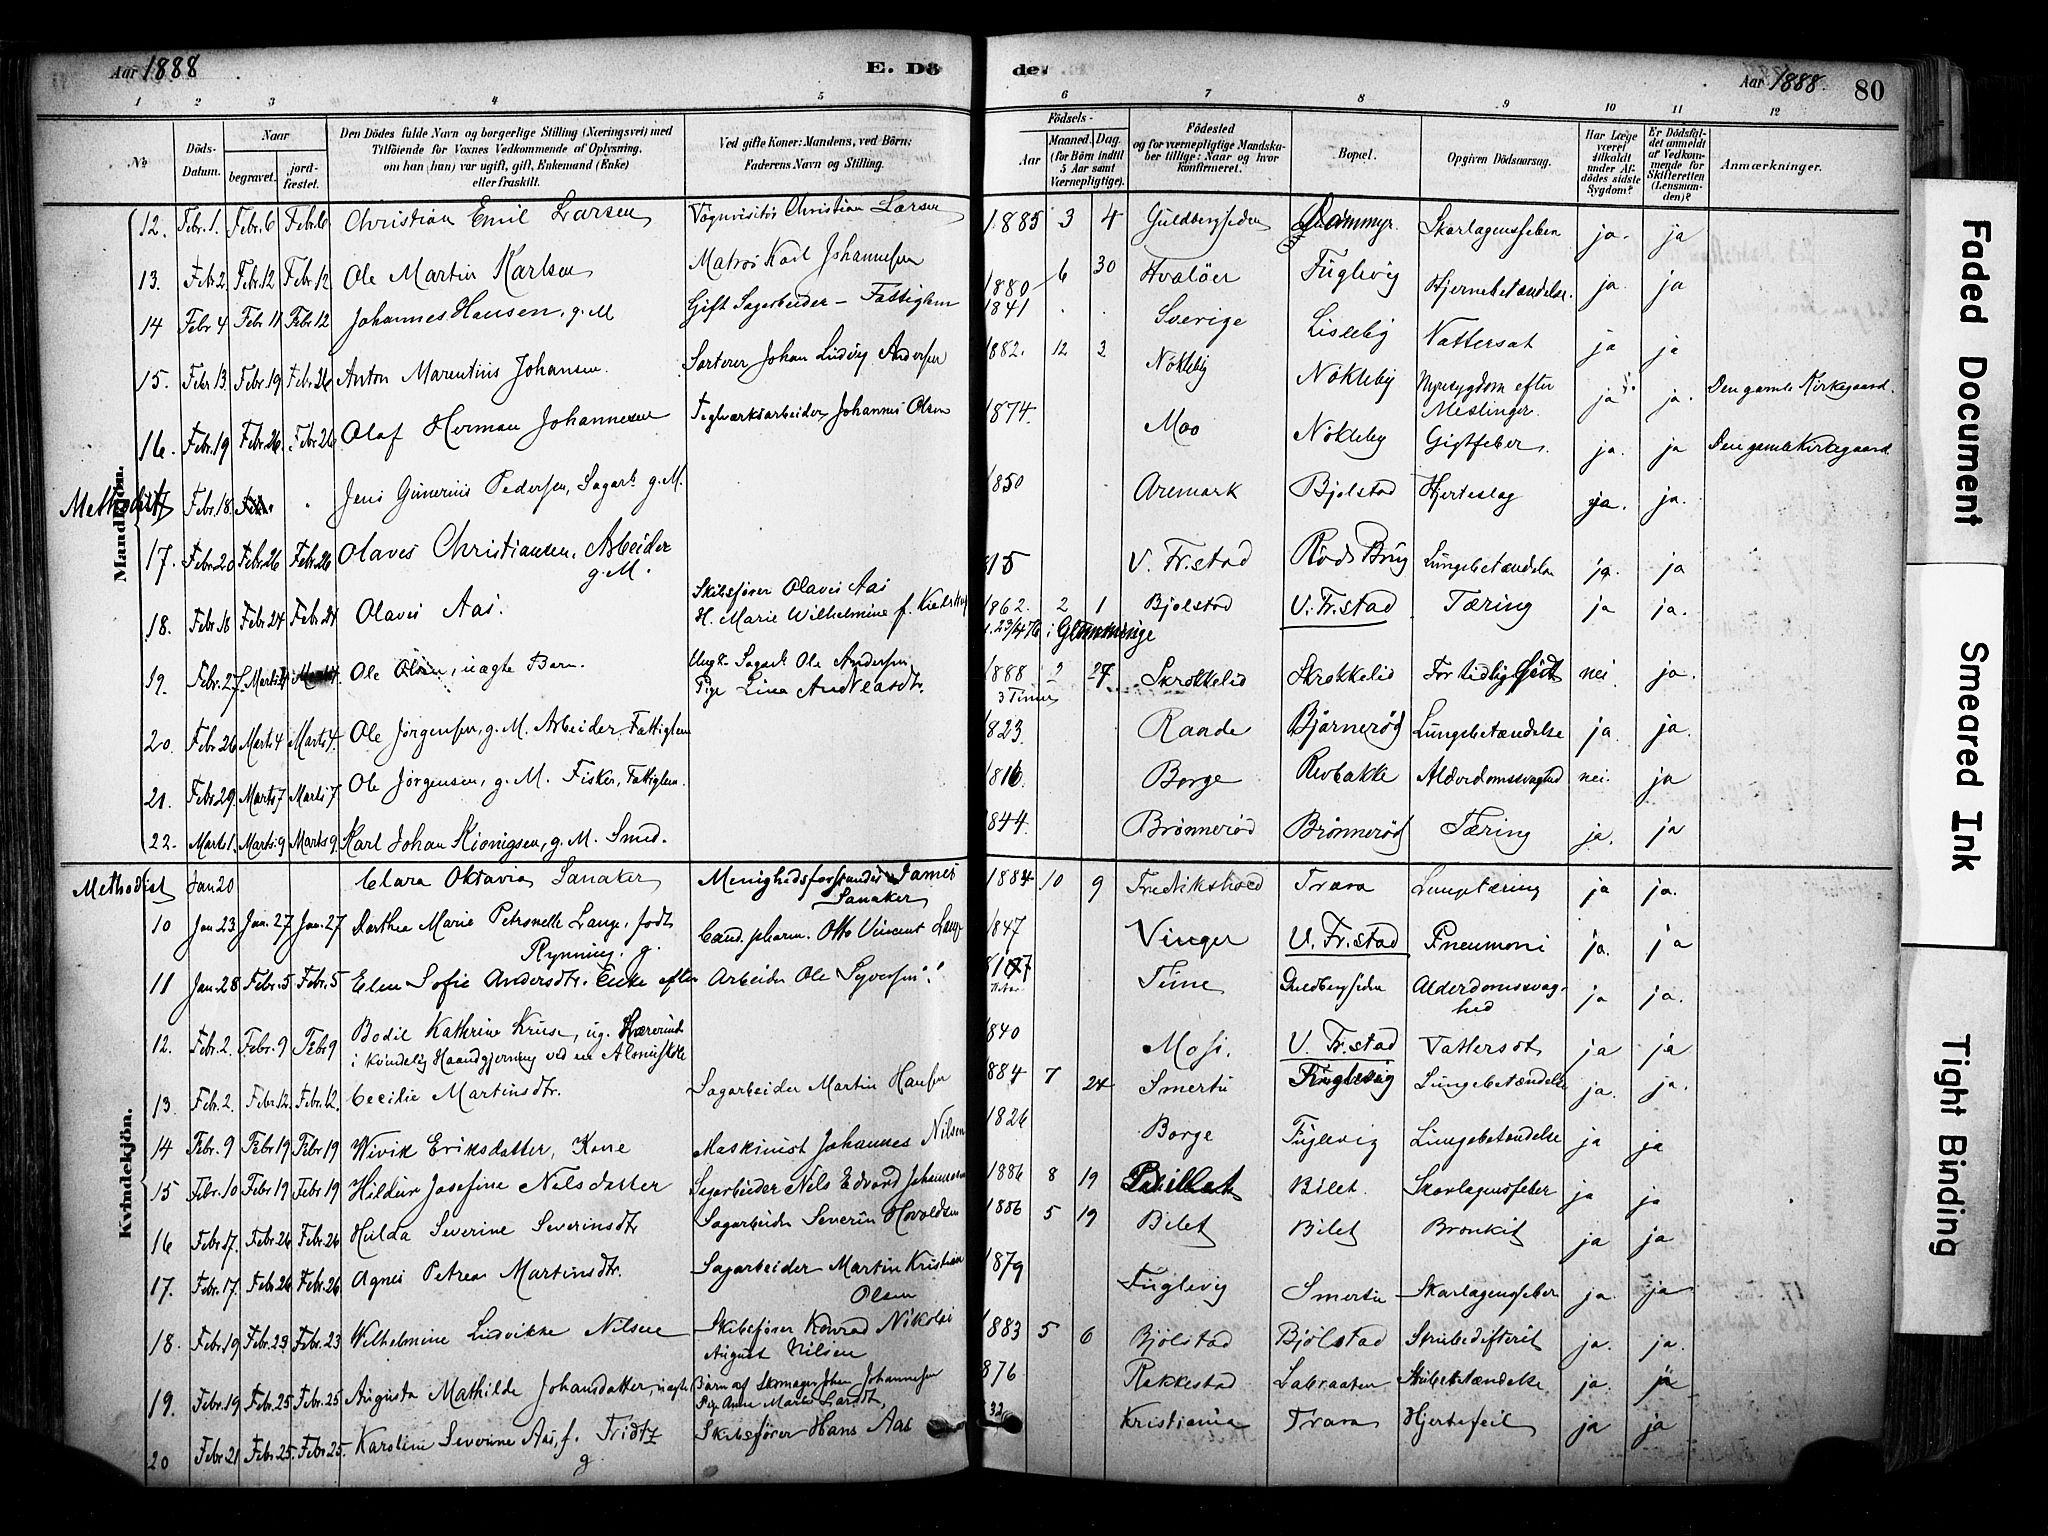 Aar 1888
E. Dö
de.
Aar 1888.
80
1 2 3 4 5 6 7 8 9 10 11 12
No.
Döds-Datum.
Naar
begravet.
jordfæstet.
Den Dödes fulde Navn og borgerlige Stilling (Næringsvei) med
Tilföiende for Voxnes Vedkommende af Oplysning,
om han (hun) var ugift, gift, Enkemand (Enke)
eller fraskilt.
Ved gifte Koner: Mandens, ved Börn:
Faderens Navn og Stilling.
Födsels-
Aar
Maaned.
Dag.
(for Börn indtil
5 Aar samt
Værnepligtige).
Födested
og for værnepligtige Mandska-
ber tillige: Naar og hvor
konfirmeret.
Bopæl.
Opgiven Dödsaarsag.
Har Læge
været
tilkaldt
under Af-
dödes sidste
Sygdom?
Er Dödsfal-
det anmeldt
af Vedkom-
mende for
Skifteretten
(Lensman-
den)?
Anmærkninger.
Mandkjön.
12. Febr. 1. Febr. 6 Febr. 6 Christian Emil Larsen Vognvisitör Christian Larsen 1885 3 4 Guldbergsiden Dammyr. Skarlagensfeber ja. ja
13. Febr 2 Febr. 12 Febr 12 Ole Martin Karlsen Matros Karl Johannesen 1880 6 30 Hvalöer Fuglevig Hjernebetændelse. ja. ja
14 Febr 4 Febr 11 Febr. 12 Johannes Hansen, g. M Gift Sagarbeider - Fattiglem 1841 Sverige Lisleby Vattersot ja ja
15. Febr 13 Febr. 19 Febr. 26 Anton Marentius Johansen. Sorterer Johan Ludvig Andersen 1882. 12 3 Nökleby Nökleby Nyresygdom efter Meslinger. ja ja. Den gamle Kirkegaard.
16. Febr. 19 Febr. 26 Febr. 26 Olaf Herman Johannesen Teglværksarbeider Johannes Olsen 1874. Moo Nökleby Gigtfeber. ja. ja Den gamle Kirkegaard
Methodist Febr. 18. Jens Gunerius Pedersen, Sagarb. g. M. 1850 Aremark Bjölstad Hjerteslag ja. ja.
17. Febr. 20 Febr. 26 Febr. 26 Olaves Christiansen, Arbeider
g. M. 815 V. Fr.stad Röds Brug Lungebetændelse ja ja
18. Febr. 18 Febr. 24 Febr. 24 Olaves Aas. Skibsförer Olaves Aas
H. Marie Wilhelmine f. 1862. 2 1 Bjölstad V. Fr.stad Tæring ja ja.
i Glemminge
19. Febr. 27 Marts 4 Marts 4. Ole Olsen, uægte Barn. Ungk. Sagarb. Ole Andersen
Pige Lina Andreasdtr. 1888 2 27 Skrokkelid Skrokkelid For tidlig Födt nei ja.
3 Timer
20. Febr. 26 Marts 4 Marts 4. Ole Jörgensen, g. M. Arbeider Fattiglem 1823. Raade Bjørnerød Lungebetændelse ja. ja.
21. Febr. 29. Marts 7 Marts 7 Ole Jörgensen, g. M. Fisker, Fattiglem. 1816. Borge Revbakke Alderdomssvaghed nei. ja
22. Marts 1. Marts. 9 Marts 9. Karl Johan Königsen, g. M. Smed. 844. Brönneröd Brönneröd Tæring ja. ja
Kvindekjön.
Methodist Jan 20 Clara Oktavia Sanaker Menighedsforstander James
Sanaker 1884 10 9 Fredrikshald Trara Lungetæring ja ja.
10 Jan 23 Jan. 27 Jan. 27 Dorthea Marie Petronelle Lange, födt
Rynning. g. Cand. pharm. Otto Vincent Lange 1847 Vinger V. Fr.stad Pneumoni ja. ja
11 Jan. 28 Febr. 5 Febr. 5 Elen Sofie Andersdtr. Enke efter Arbeider Ole Syversen Tune Guldbergsiden Alderdomssvag-
hed ja ja.
12. Febr. 2. Febr. 9 Febr 9 Bodil Kathrine Kruse, ug. Lærerinde
i kvindelig Haandgjerning ved en Almueskole 1840 Moss. V. Fr.stad Vattersot ja ja
13. Febr. 2. Febr 12. Febr. 12. Cecilie Martinsdtr. Sagarbeider Martin Hansen 884 7 24 Smertu Fuglevig Lungebetændelse ja. ja.
14 Febr. 9 Febr 19 Febr 19 Wivik Eriksdatter, Kone Maskinist Johannes Nilsen 1826 Borge Fuglevig Lungebetændelse ja ja
15 Febr. 10 Febr 19 Febr. 19 Hildur Josefine Nilsdatter Sagarbeider Nils Edvard Johannesen 1886 8 19 Bilet. Skarlagensfeber ja ja
16 Febr. 17. Febr. 26 Febr. 26 Hulda Severine Severinsdtr Sagarbeider Severin Havoldsen 1886 5 19 Bilet Bilet Bronkit ja ja
17. Febr. 17. Febr. 26 Febr. 26 Agnes Petrea Martinsdtr. Sagarbeider Martin Kristian
Olsen 1879 Fuglevig Smertu Skarlagensfeber ja. ja
18. Febr. 19 Febr. 23 Febr. 23 Wilhelmine Ludvikke Nilsen Skibsförer Konrad Nikolai
August Nilsen 1883 5 6 Bjölstad Bjölstad Strubedifterit ja. ja.
19. Febr. 19 Febr. 25 Febr. 25 Augusta Mathilde Johansdatter, uægte Barn af Skomager Johan Johannesen
Pige Anne Marie Larsdt. 876 Rakkestad Labraaten Strubebetændelse ja. ja
20 Febr. 21 Febr. 25. Febr. 25. Karoline Severine Aas, f. Tridtz
g Skibsförer Hans Aas 32 Kristiania Trara Hjertefeil ja ja
Faded Document
Smeared Ink
Tight Binding